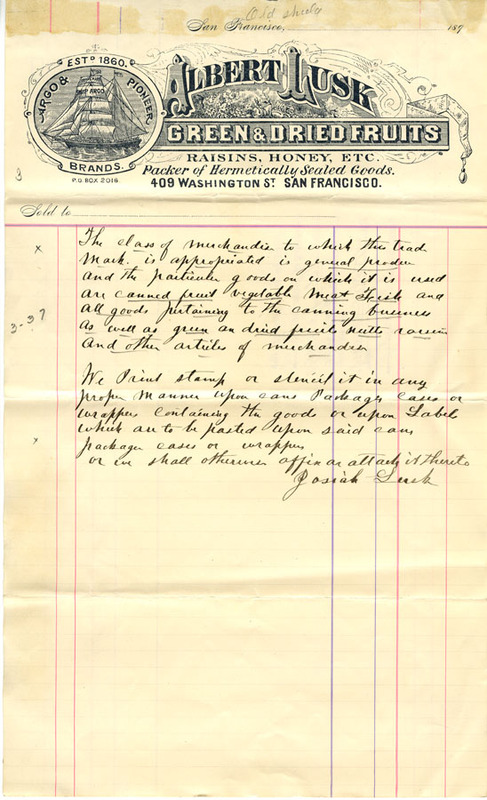 Old
San Francisco, 189
ESTD 1860.
ARGO & PIONEER
SHIP ARGO
BRANDS.
P.O. BOX 2016.
ALBERT LUSK
GREEN & DRIED FRUITS
RAISINS, HONEY, ETC.
Packer of Hermetically Sealed Goods.
409 WASHINGTON ST. SAN FRANCISCO.
3
Sold to
x
The class of merchandise to which this trad
Mark. is appropriated is general produce
And the particular goods on which it is used
Are canned fruit vegetable meat Fish and
All goods pertaining to the canning business
3-37
As well as green an dried fruits nutts raisins
And other articles of merchandise
We Print stamp or stencil it in any
proper manner upon cans Packages cases or
wrappers containing the goods or upon Label
which are to be pasted upon said cans
x
packages cases or wrappers
or we shall otherwise affix or attach it thereto
Josiah Lusk